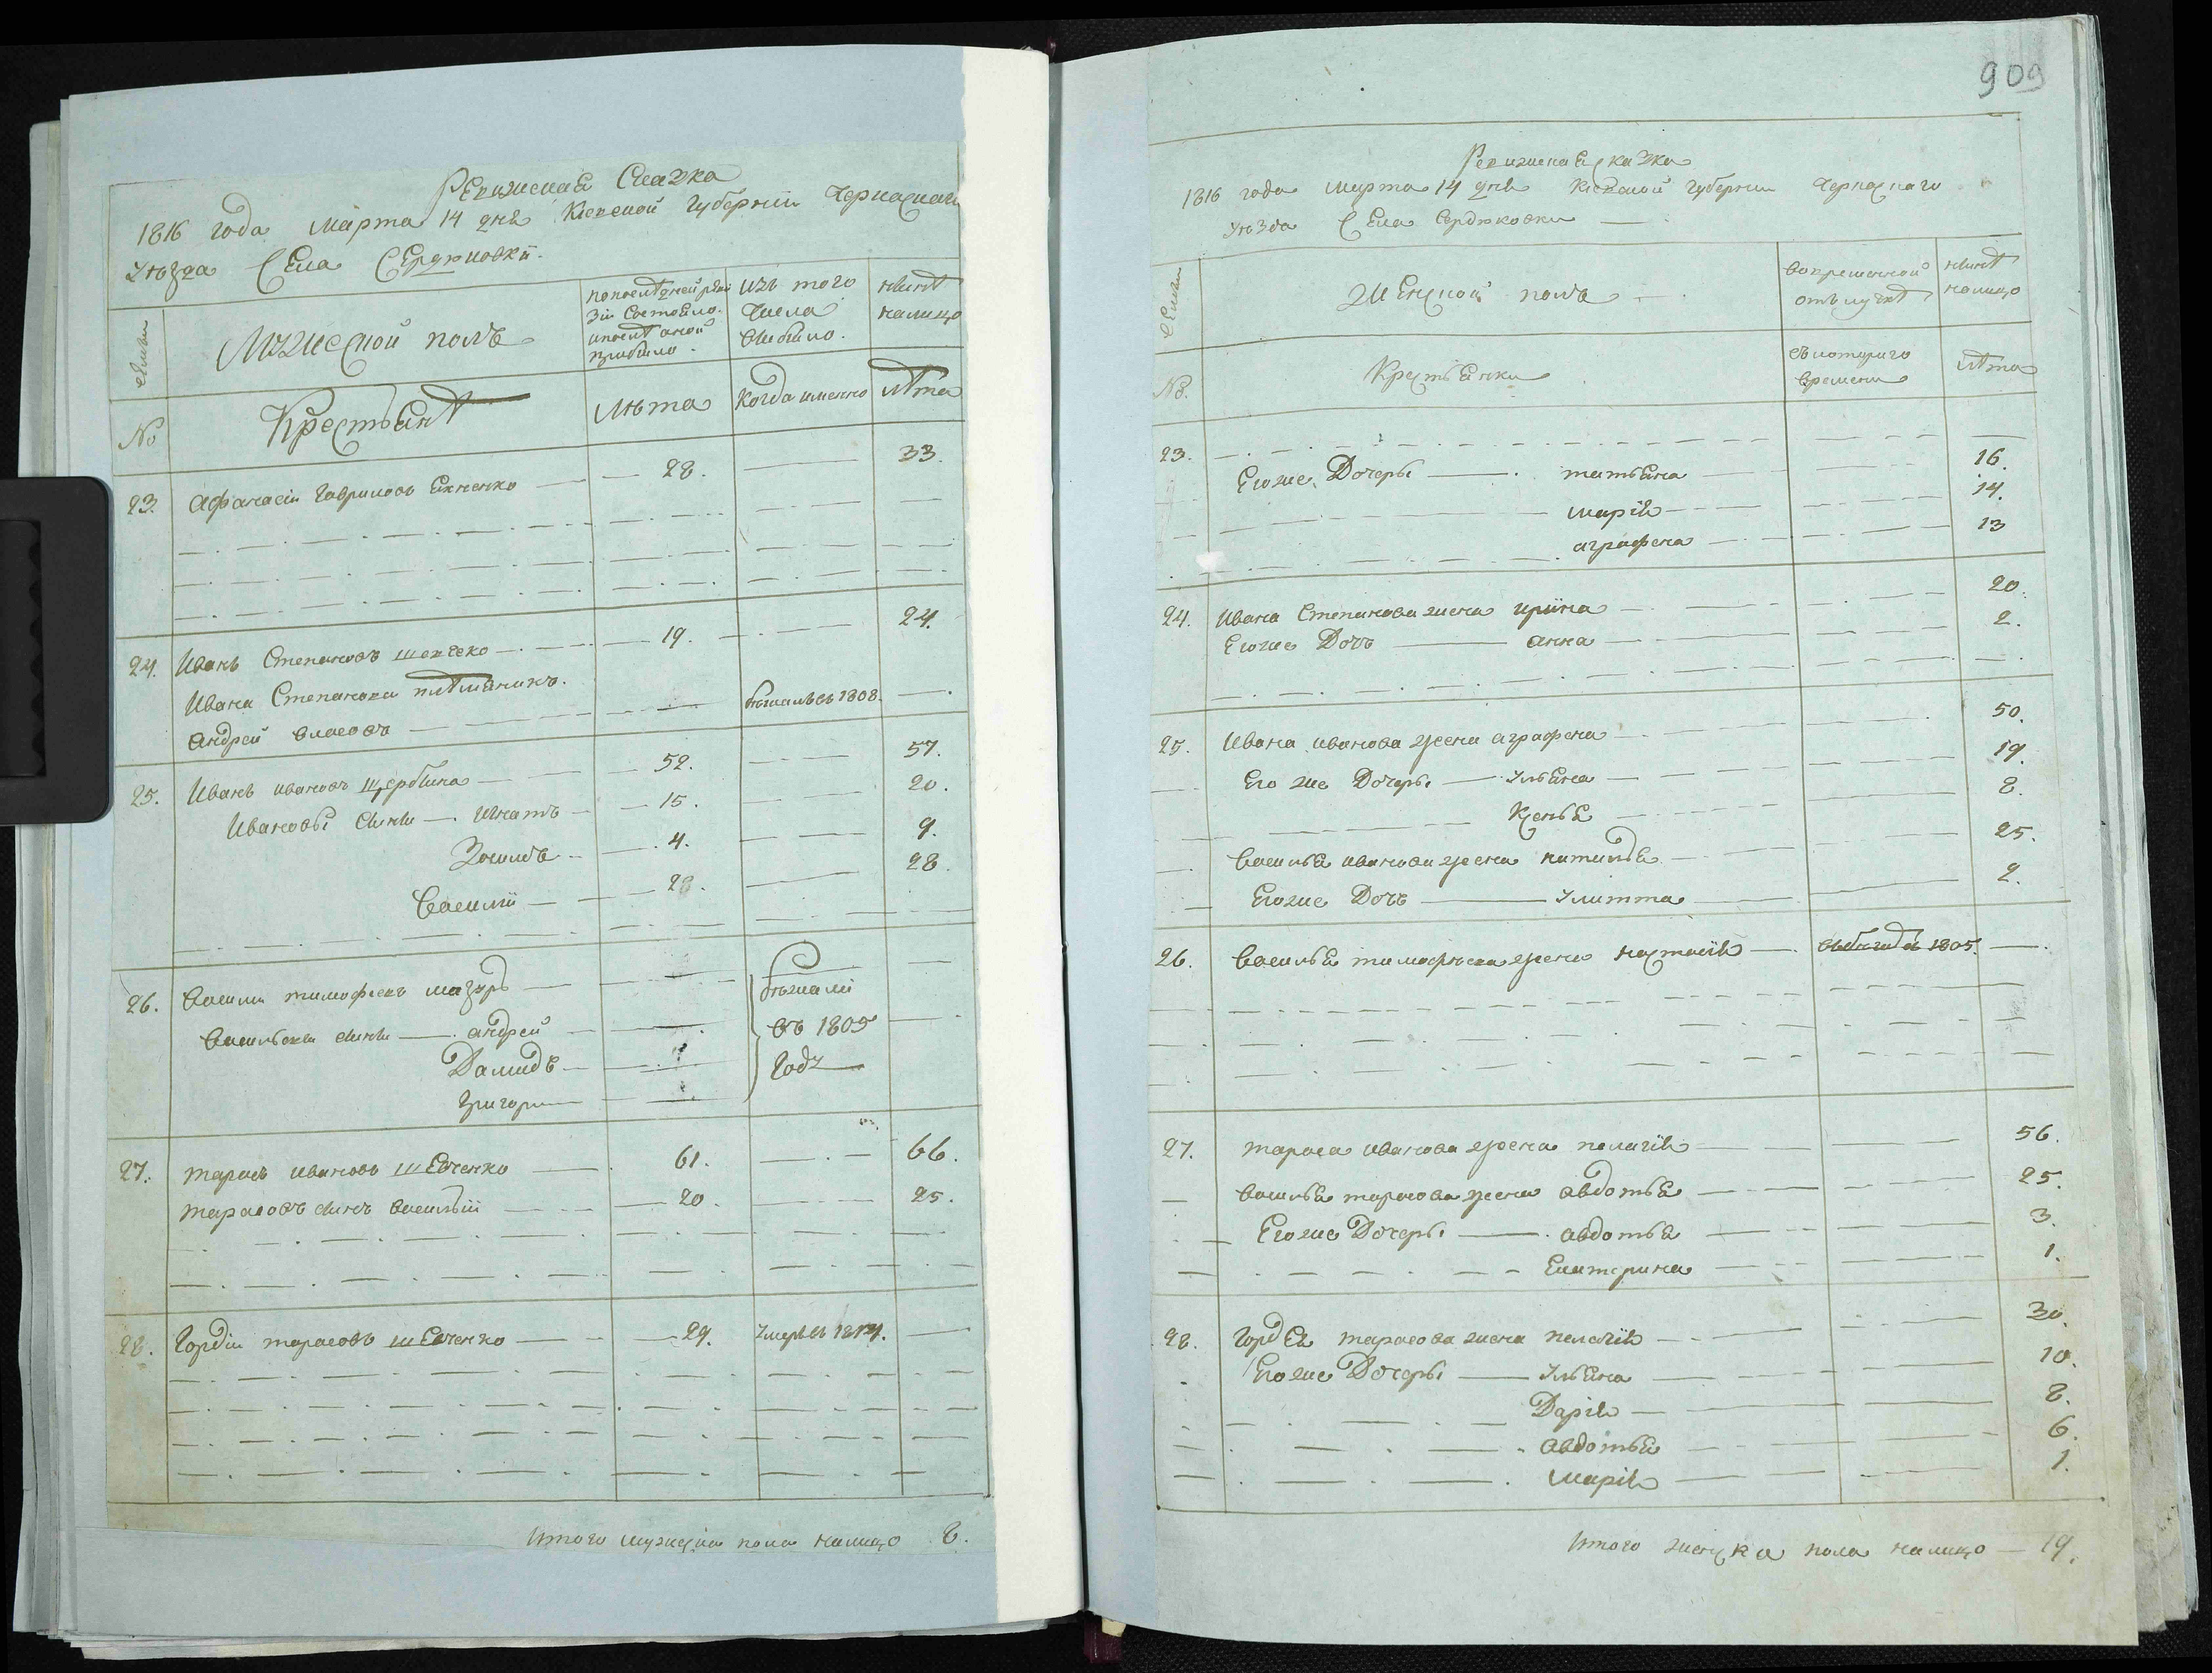 909
Ревизская Сказка
1816 года Марта 14 дня Киевской Губернии Черкаскаго
уѣзда Села Сердюковки.
Семьи
Мужеской полъ
по последней реви
зіи состояло
и после оной
прибыло.
изъ того
числа
выбыло.
ныне
налицо
№
Крестьяне
Лѣта
Когда именно
лета
23. Афанасіи Гавриловъ Яхненко — 28. — 33.
24. Иванъ Степановъ шевченко — 19. — 24.
Ивана Степанова племяникъ.
Андреи власовъ — бѣжалъ въ 1808. —
25. Иванъ ивановъ щербина — 52. — 57.
Ивановы сыни — Игнатъ — 15. — 20.
Зосимъ — 4. — 9.
Василіи — 28. — 28.
26. Василии тимофеевъ мазуръ —
Васильевы сыни — андреи —
Демидъ —
Григории —
бѣжали
въ 1805
Году
27. Тарасъ ивановъ шевченко — 61. — 66.
Тарасовъ сынъ василіи — 20. — 25.
28. Гордіи тарасовъ шевченко — 29. умеръ въ 1814. —
Итого мужеска пола налицо 8.
Ревизская сказка
1816 года марта 14 дня Киевской губернии Черкаскаго
уѣзда Села Сердюковки —
Семьи
Женской полъ
во временной
отълучке
ныне
налицо
№.
Крестьянки
съ котораго
времени
лета
23.
Егоже Дочеры — татьяна — 16.
марія — 14.
аграфена — 13
24. Ивана Степанова жена ирина — 20.
Егоже Дочъ — анна — 2.
25. Ивана иванова жена аграфена — 50.
Его же Дочеры — ульяна — 19.
Ксенья — 8.
Василья иванова жена — 25.
Егоже Дочъ — улитта — 2.
26. Василья тимофеева жена настасія — 1805. —
27. Тараса иванова жена пелагія — 56.
Василья тарасова жена авдотья — 25.
Егоже Дочеры — авдотья — 3.
Екатерина — 1.
28. Гордея тарасова жена пелагія — 30.
Егоже Дочеры — ульяна — 10.
Дарія — 8.
авдотья — 6.
марія — 1.
Итого женска пола налицо — 19.